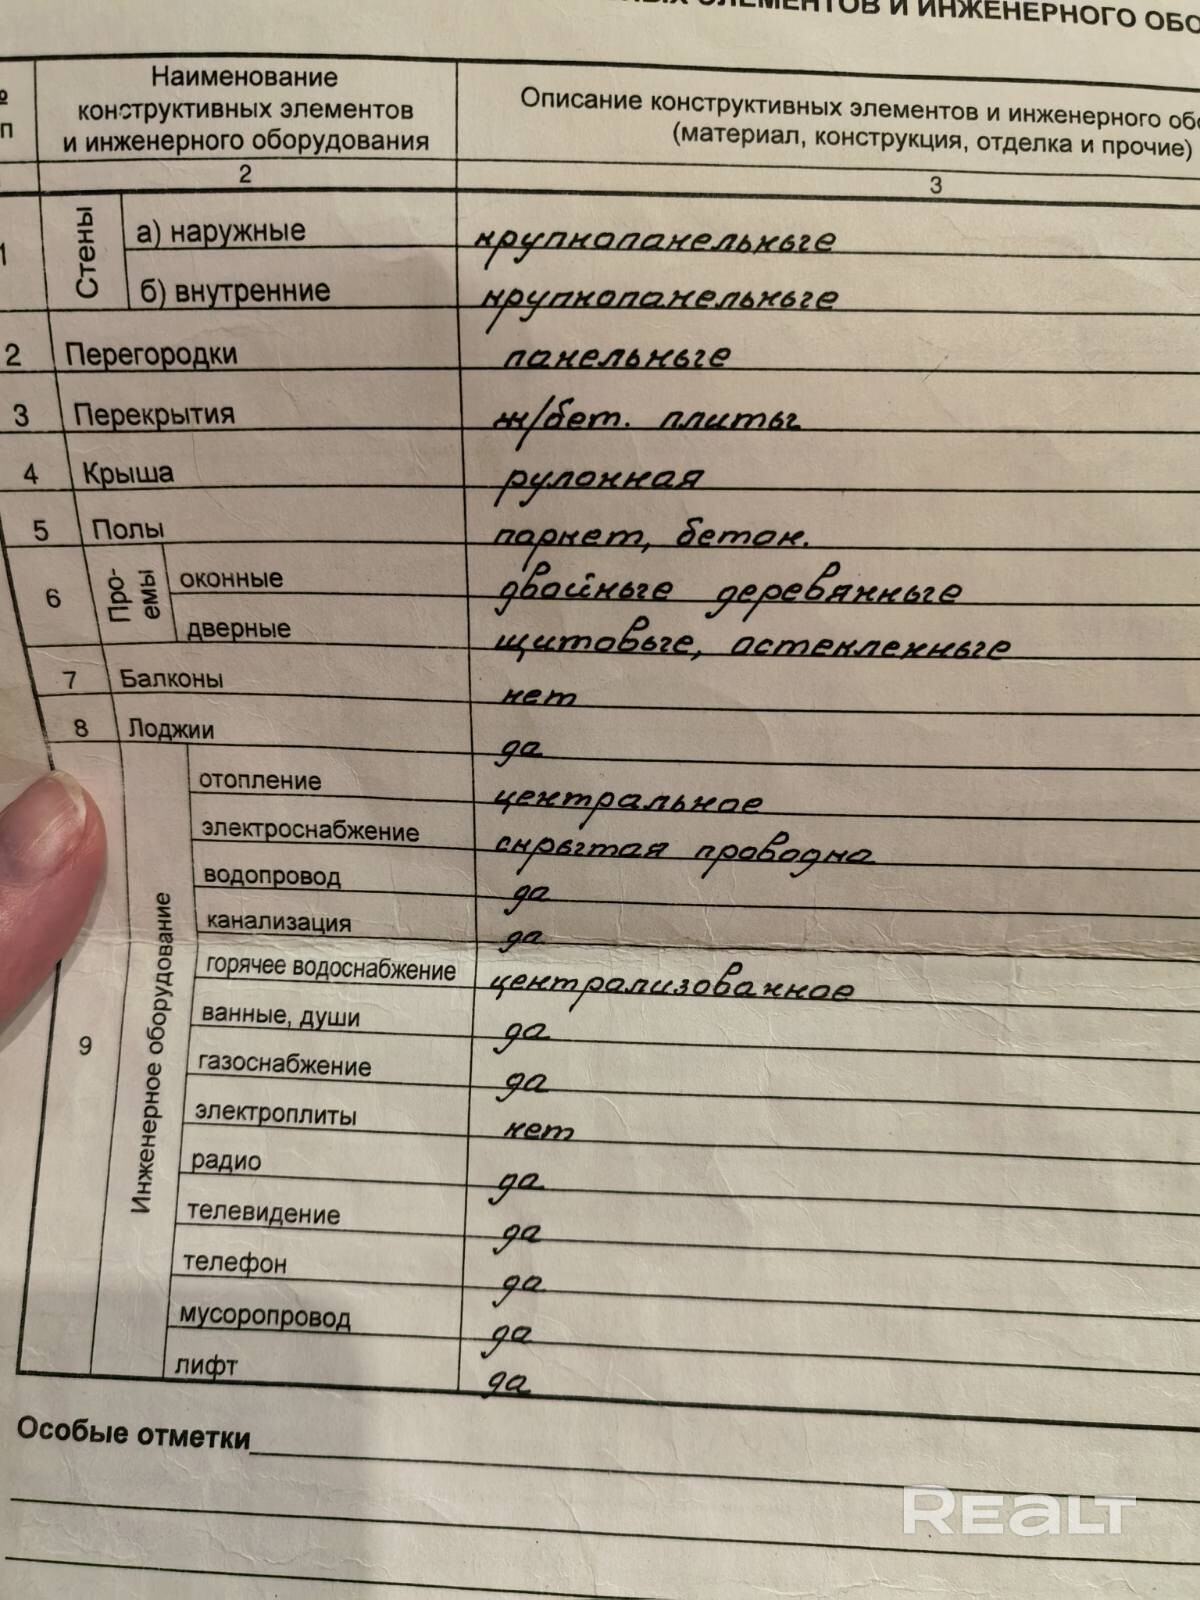 ЭЛЕМЕНТОВ И ИНЖЕНЕРНОГО ОБО
№
п
Наименование
конструктивных элементов
и инженерного оборудования
Описание конструктивных элементов и инженерного обо
(материал, конструкция, отделка и прочие)
2
3
1
Стены
а) наружные
крупнопанельные
б) внутренние
крупнопанельные
2 Перегородки панельные
3 Перекрытия ж/бет. плиты
4 Крыша рулонная
5 Полы паркет, бетон.
6
Про-
емы
оконные двойные деревянные
дверные щитовые, остекленные
7 Балконы нет
8 Лоджии да
9
Инженерное оборудование
отопление центральное
электроснабжение скрытая проводка
водопровод да
канализация да
горячее водоснабжение централизованное
ванные, души да
газоснабжение да
электроплиты нет
радио да
телевидение да
телефон да
мусоропровод да
лифт да
Особые отметки
REALT